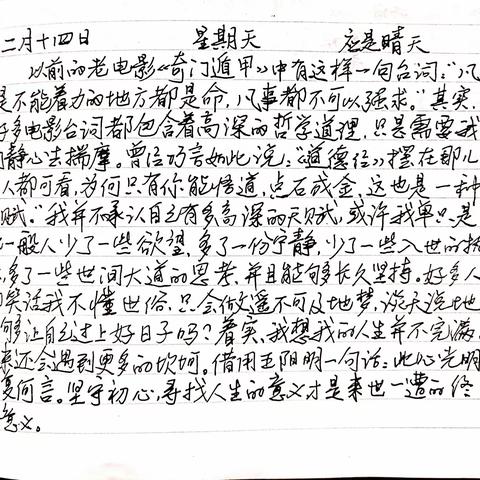 二月十四日 星期天 应是晴天
以前的老电影《奇门遁甲》中有这样一句台词："凡
是不能着力的地方都是命，凡事都不可以强求。"其实，
好多电影台词都包含着高深的哲学道理，只是需要我
们静心去揣摩。曾经巧言如此说："《道德经》摆在那儿
人都可看，为何只有你能悟道，点石成金，这也是一种
赋。"我并不承认自己有多高深的天赋，或许我单只是
一般人少了一些欲望，多了一份宁静，少了一些入世的
多了一些世间大道的思考，并且能够长久坚持。好多人
笑话我不懂世俗，只会做遥不可及地梦，谈天说地
够让自己过上好日子吗？着实，我想我的人生并不完满，
来还会遇到更多的坎坷。借用王阳明一句话：此心光明
复何言。坚守初心，寻找人生的意义才是来世一遭的终
意义。